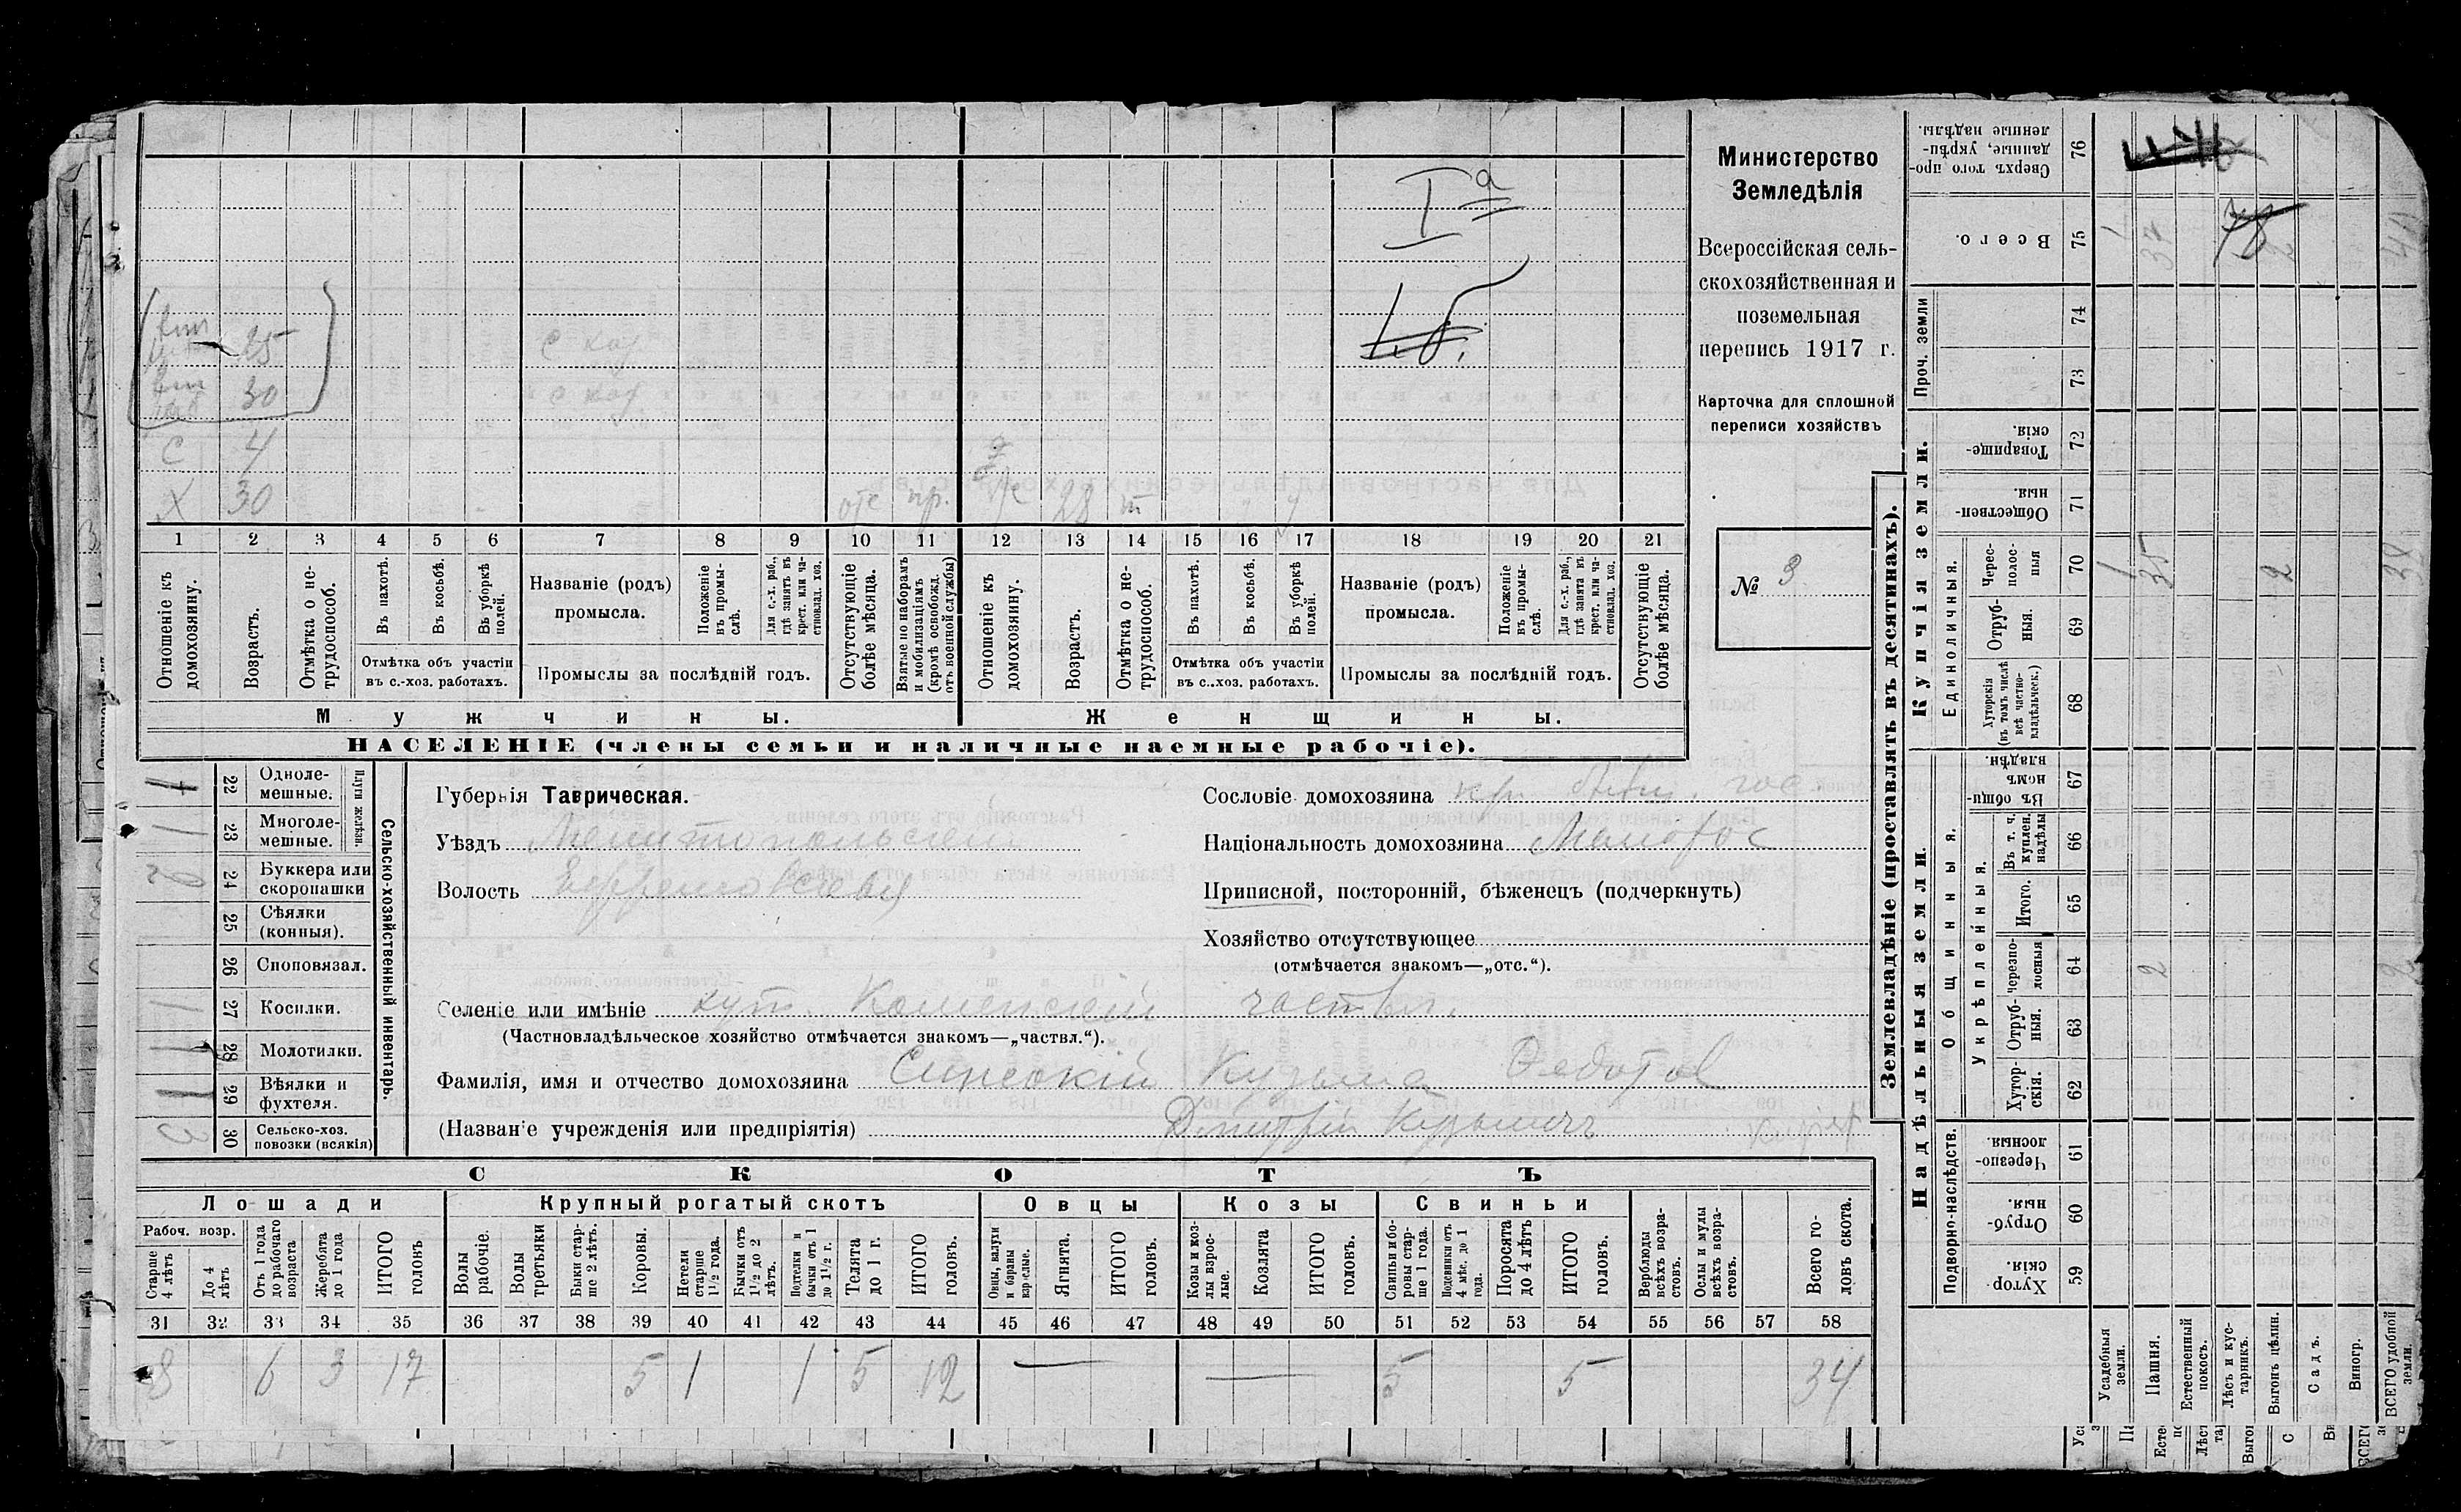 Министерство
Земледѣлія
Всероссійская сель-
скохозяйственная и
поземельная
перепись 1917 г.
Карточка для сплошной
переписи хозяйствъ
№ 3
Iа
25
30
С 4
Х 30 отс пр. 28
1 2 3 4 5 6 7 8 9 10 11 12 13 14 15 16 17 18 19 20 21
Отношеніе къ домохозяину.
Возрастъ.
Отмѣтка о не-трудоспособ.
Въ пахотѣ.
Въ косьбѣ.
Въ уборкѣ полей.
Отмѣтка объ участіи
въ с.-хоз. работахъ.
Названіе (родъ)
промысла.
Положеніе въ промы-слѣ.
Для с.-х. раб., гдѣ занятъ въ крест. или ча-стновлад. хоз.
Промыслы за послѣдній годъ.
Отсутствующіе болѣе мѣсяца.
Взятые по наборамъ и мобилизаціямъ (кромѣ освобожд. отъ военной службы)
Отношеніе къ домохозяину.
Возрастъ.
Отмѣтка о не-трудоспособ.
Въ пахотѣ.
Въ косьбѣ.
Въ уборкѣ полей.
Отмѣтка объ участіи
въ с..хоз. работахъ.
Названіе (родъ)
промысла.
Положеніе въ промы-слѣ.
Для с.-х. раб., гдѣ занята въ крест. или ча-стновлад. хоз.
Промыслы за послѣдній годъ.
Отсутствующіе болѣе мѣсяца.
Мужчины.
Женщины.
НАСЕЛЕНІЕ (члены семьи и наличные наемные рабочіе).
Сельско-хозяйственный инвентарь.
Плуги желѣзн.
22 Одноле-мешные.
1 23 Многоле-мешные.
2 24 Буккера или скоропашки
25 Сѣялки (конныя).
26 Сноповязал.
1 27 Косилки.
1 28 Молотилки.
1 29 Вѣялки и фухтеля.
3 30 Сельско-хоз. повозки (всякія)
Губернія Таврическая.
Уѣздъ Мелитопольскій
Волость Ефремовская
Сословіе домохозяина
Національность домохозяина Малорос
Приписной, посторонній, бѣженецъ (подчеркнуть)
Хозяйство отсутствующее
(отмѣчается знакомъ—„отс.“).
Селеніе или имѣніе хут. Каменскій частвл.
(Частновладѣльческое хозяйство отмѣчается знакомъ—„частвл.“).
Фамилія, имя и отчество домохозяина Кузьма Федотов
(Названіе учрежденія или предпріятія) Дмитрій Кузьмичъ
СКОТЪ
Лошади
Крупный рогатый скотъ
Овцы
Козы
Свиньи
Рабоч. возр.
Старше 4 лѣтъ
До 4 лѣтъ
Отъ 1 года до рабочаго возраста
Жеребята до 1 года
ИТОГО головъ
Волы рабочіе.
Волы третьяки
Быки стар-ше 2 лѣтъ.
Коровы.
Нетели старше 1½ года.
Бычки отъ 1½ до 2 лѣтъ.
Подтелки и бычки отъ 1 до 1½ г.
Телята до 1 г.
ИТОГО головъ.
Овцы, валухи и бараны взрослые.
Ягнята.
ИТОГО головъ.
Козы и коз-лы взрос-лые.
Козлята
ИТОГО головъ.
Свиньи и бо-ровы стар-ше 1 года.
Подсвинки отъ 4 мѣс. до 1 года.
Поросята до 4 лѣтъ
ИТОГО головъ.
Верблюды всѣхъ возра-стовъ.
Ослы и мулы всѣхъ возра-стовъ.
Всего го-ловъ скота.
31 32 33 34 35 36 37 38 39 40 41 42 43 44 45 46 47 48 49 50 51 52 53 54 55 56 57 58
8 6 3 17 5 1 1 5 12 — — 5 5 34
Землевладѣніе (проставлять въ десятинахъ).
Купчія земли.
Надѣльныя земли.
Сверхъ того про-данные, укрѣп-ленные надѣлы. 76
Всего. 75
Проч. земли
74
73
Товарище-скія. 72
Обществен-ныя. 71
Единоличныя.
Черес-полос-ныя 70 1 35 2
Отруб-ныя. 69
Хуторскія (въ томъ числѣ всѣ частно-владѣльческ.) 68
Общинныя.
Въ общи-номъ владѣн. 67
Укрѣпленныя.
Въ т. ч. куплен. надѣлы 66
Итого. 65
Черезпо-лосныя 64 2 2
Отруб-ныя. 63
Хутор-скія. 62
Подворно-наслѣдств.
Черезпо-лосныя. 61
Отруб-ныя. 60
Хутор-скія. 59
Усадебныя земли.
Пашня.
Естественный покосъ.
Лѣсъ и кус-тарникъ.
Выгонъ цѣлин.
Садъ.
Виногр.
ВСЕГО удобной земли.